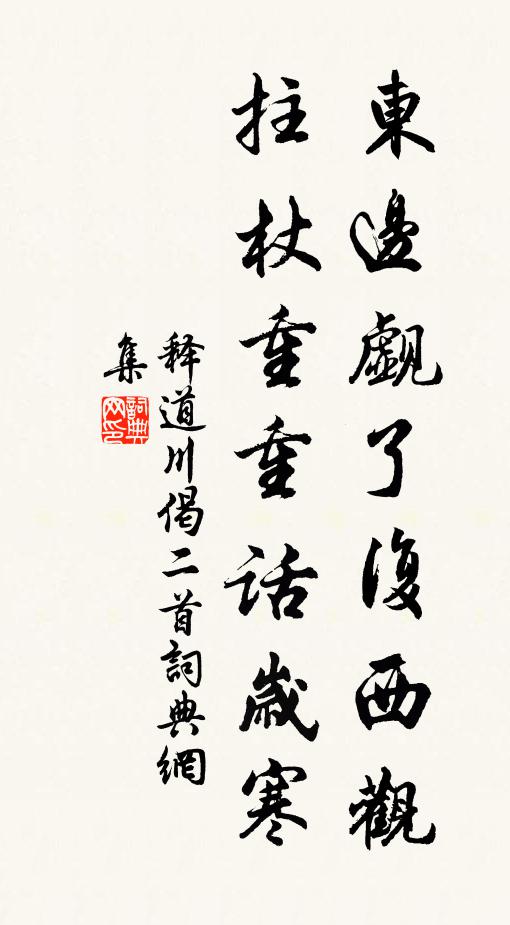 東邊覰了復西觀
拄杖重重話歲寒
释道川偈二首詞典網
集
詞典網印